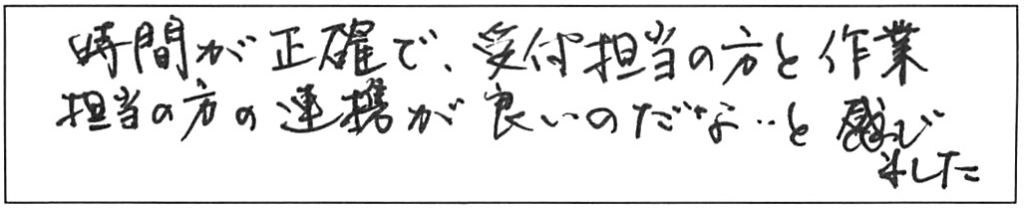 時間が正確で、受付担当の方と作業
担当の方の連携が良いのだな‥と感じ
ました